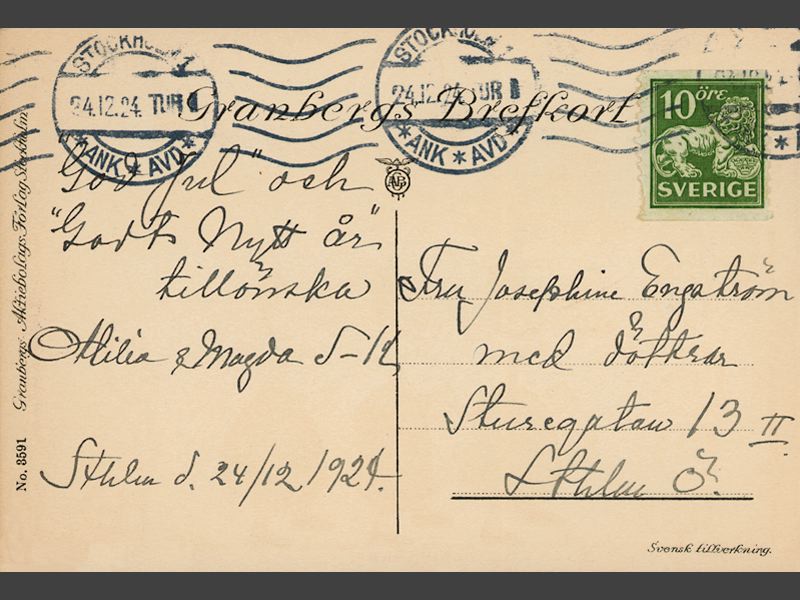 STOCKHOLM 1
24.12.24. TUR
*ANK*AVD*
STOCKHOLM 1
24.12.24. TUR
*ANK*AVD*
Granbergs Brefkort
10 ÖRE
SVERIGE
"God Jul" och
"Godt Nytt år"
tillönska
Milia & Magda S-H
Sthlm d. 24/12 1924.
Fru Josephine Engström
med döttrar
Sturegatan 13 II
Sthlm Ö.
No. 3591 Granbergs Aktiebolags Förlag Stockholm
Svensk tillverkning.